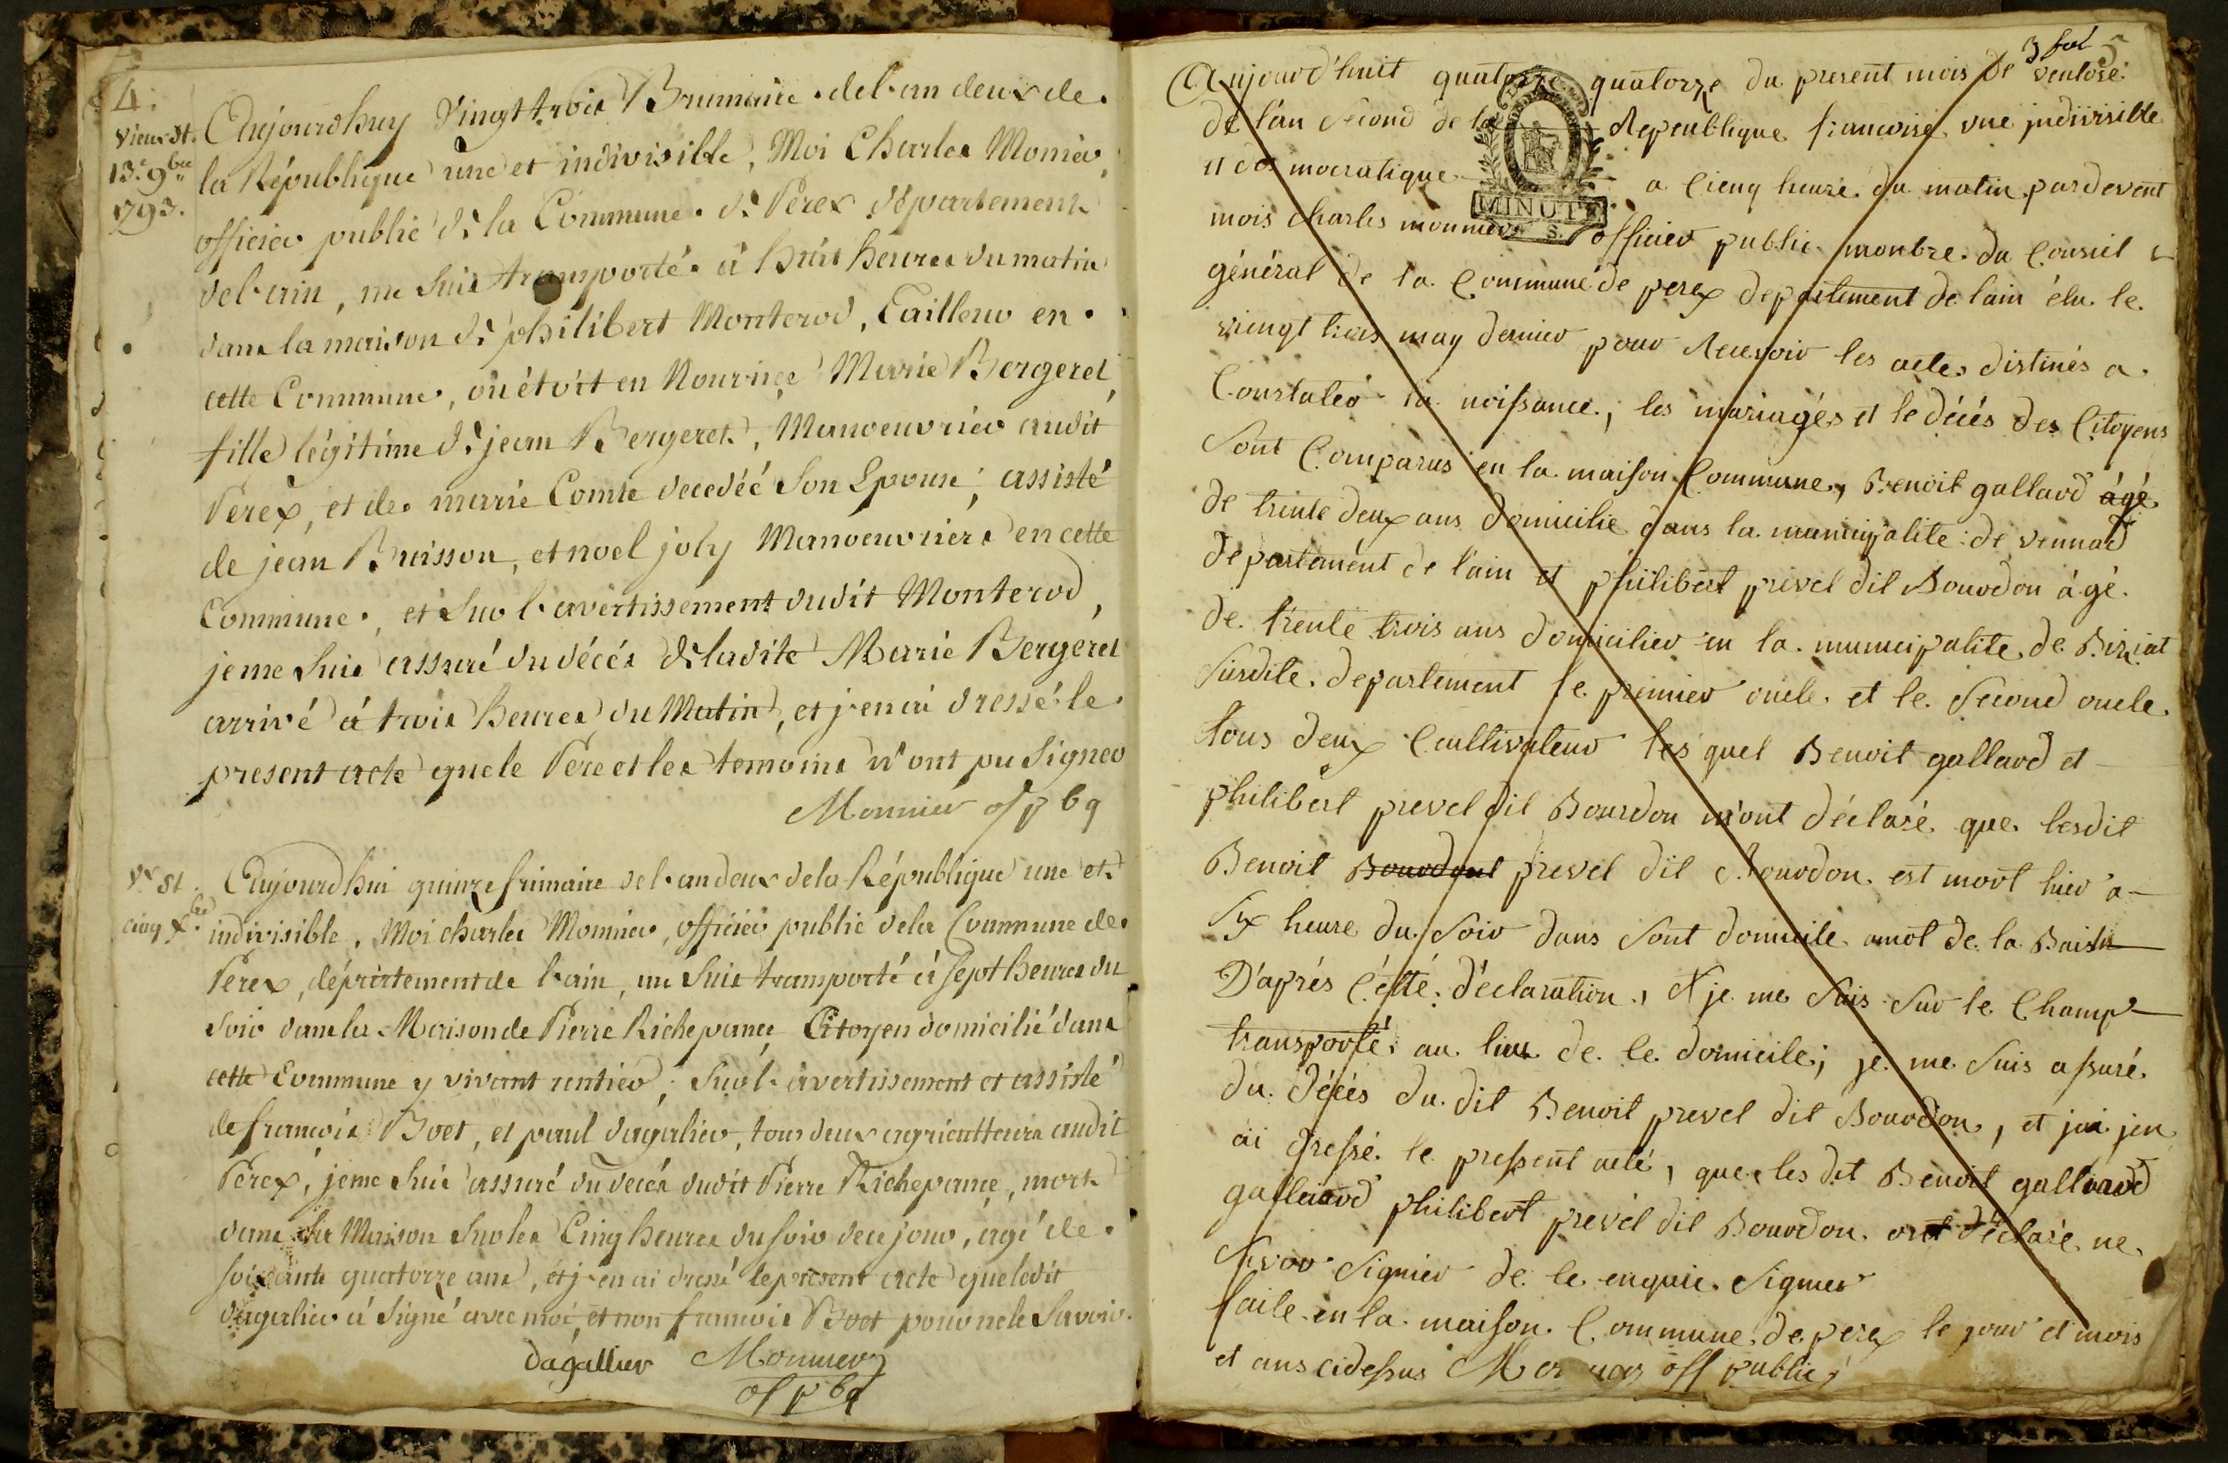 4.
vieux st.
13e 9bre
1793.
Aujourdhuy vingt trois Brumaire de l'an deux de
la République une et indivisible, Moi Charles Monier,
officier public de la Commune de Perex département
del'ain, me suis transporté à huit heures du matin
dans la maison de philibert Monterod, Tailleur en
cette Commune, ou étoit en Nourrice Marie Bergeret,
fille légitime de jean Bergeret, Manoeuvrier audit
Perex, et de marie Comte decedée son Epouse; assisté
de jean Buisson, et noel joly Manoeuvriers en cette
Commune, et sur l'avertissement dudit Monterod,
jeme suis assuré du décés de ladite Marie Bergeret
arrivé à trois heures du Matin, et j'en ai dressé le
present acte que le Pere et les temoins n'ont pu signer
Monnier of pbq
Vx st.
cinq Xbre
Aujourdhui quinze frimaire del'an deux dela République une et
indivisible, Moi charles Monnier, officier public dela Commune de
Perex, département de l'ain, me suis transporté à sept heures du
soir dans la Maison de Pierre Richepance, Citoyen domicilié dans
cette Commune y vivant rentier; sur l'avertissement et assisté
de francois Boet, et paul dagalier, tous deux agriculteurs audit
Perex, jeme suis assuré du décés dudit Pierre Richepance, mort
dans sa Maison sur les Cinq heures du soir de ce jour, agé de
soixante quatorze ans, et j'en ai dressé le present acte que ledit
dagalier à signé avec moi, et non francois Boet pour ne le savoir.
dagallier Monnier
of pbq
3 fol 5
Aujourd'huit quatorze quatorze du present mois de ventose
de l'an second de la Republique francoise une indivisible
et de mocratique a Cienq heure du matin pardevent
MINUTE
S.
mois charles monnier officier public monbre du Conseil
général de la Commune de perex departement de lain élu le
viengt trois may dernier pour Recevoir les actes distinés a
Constater la noissance, les mariagés et le décés des Citoyens
sont Comparus en la maison Commune, Benoit gallard âgé
de trinte deux ans domicilie dans la municipalité de vennad
departement de l'ain et philibert prevel dit Bourdon âgé
de trente trois ans domicilier en la municipalité de Biziat
susdite departement le premier oncle et le second oncle
tous deux Cultivateur les quel Benoit gallard et
philibert prevel dit Bourdon m'ont déclaré que lesdit
Benoit Bourdont prevel dit Bourdon est mort hier a
six heure du soir dans sont domicile amot de la Baisse
D'aprés Cétté déclaration, je me suis sur le Champ
transporté au lieu de le domicile; je me suis assuré
du décés du dit Benoit prevel dit Bourdon, et jai jen
ai dressé le pressent acté, que les dit Benoit galliard
galliard philibert prevel dit Bourdon ont déclaré ne
savoir signier de le enquie signier
faite en la maison Commune de perex le jour et mois
et ans cidessus Monnier off public